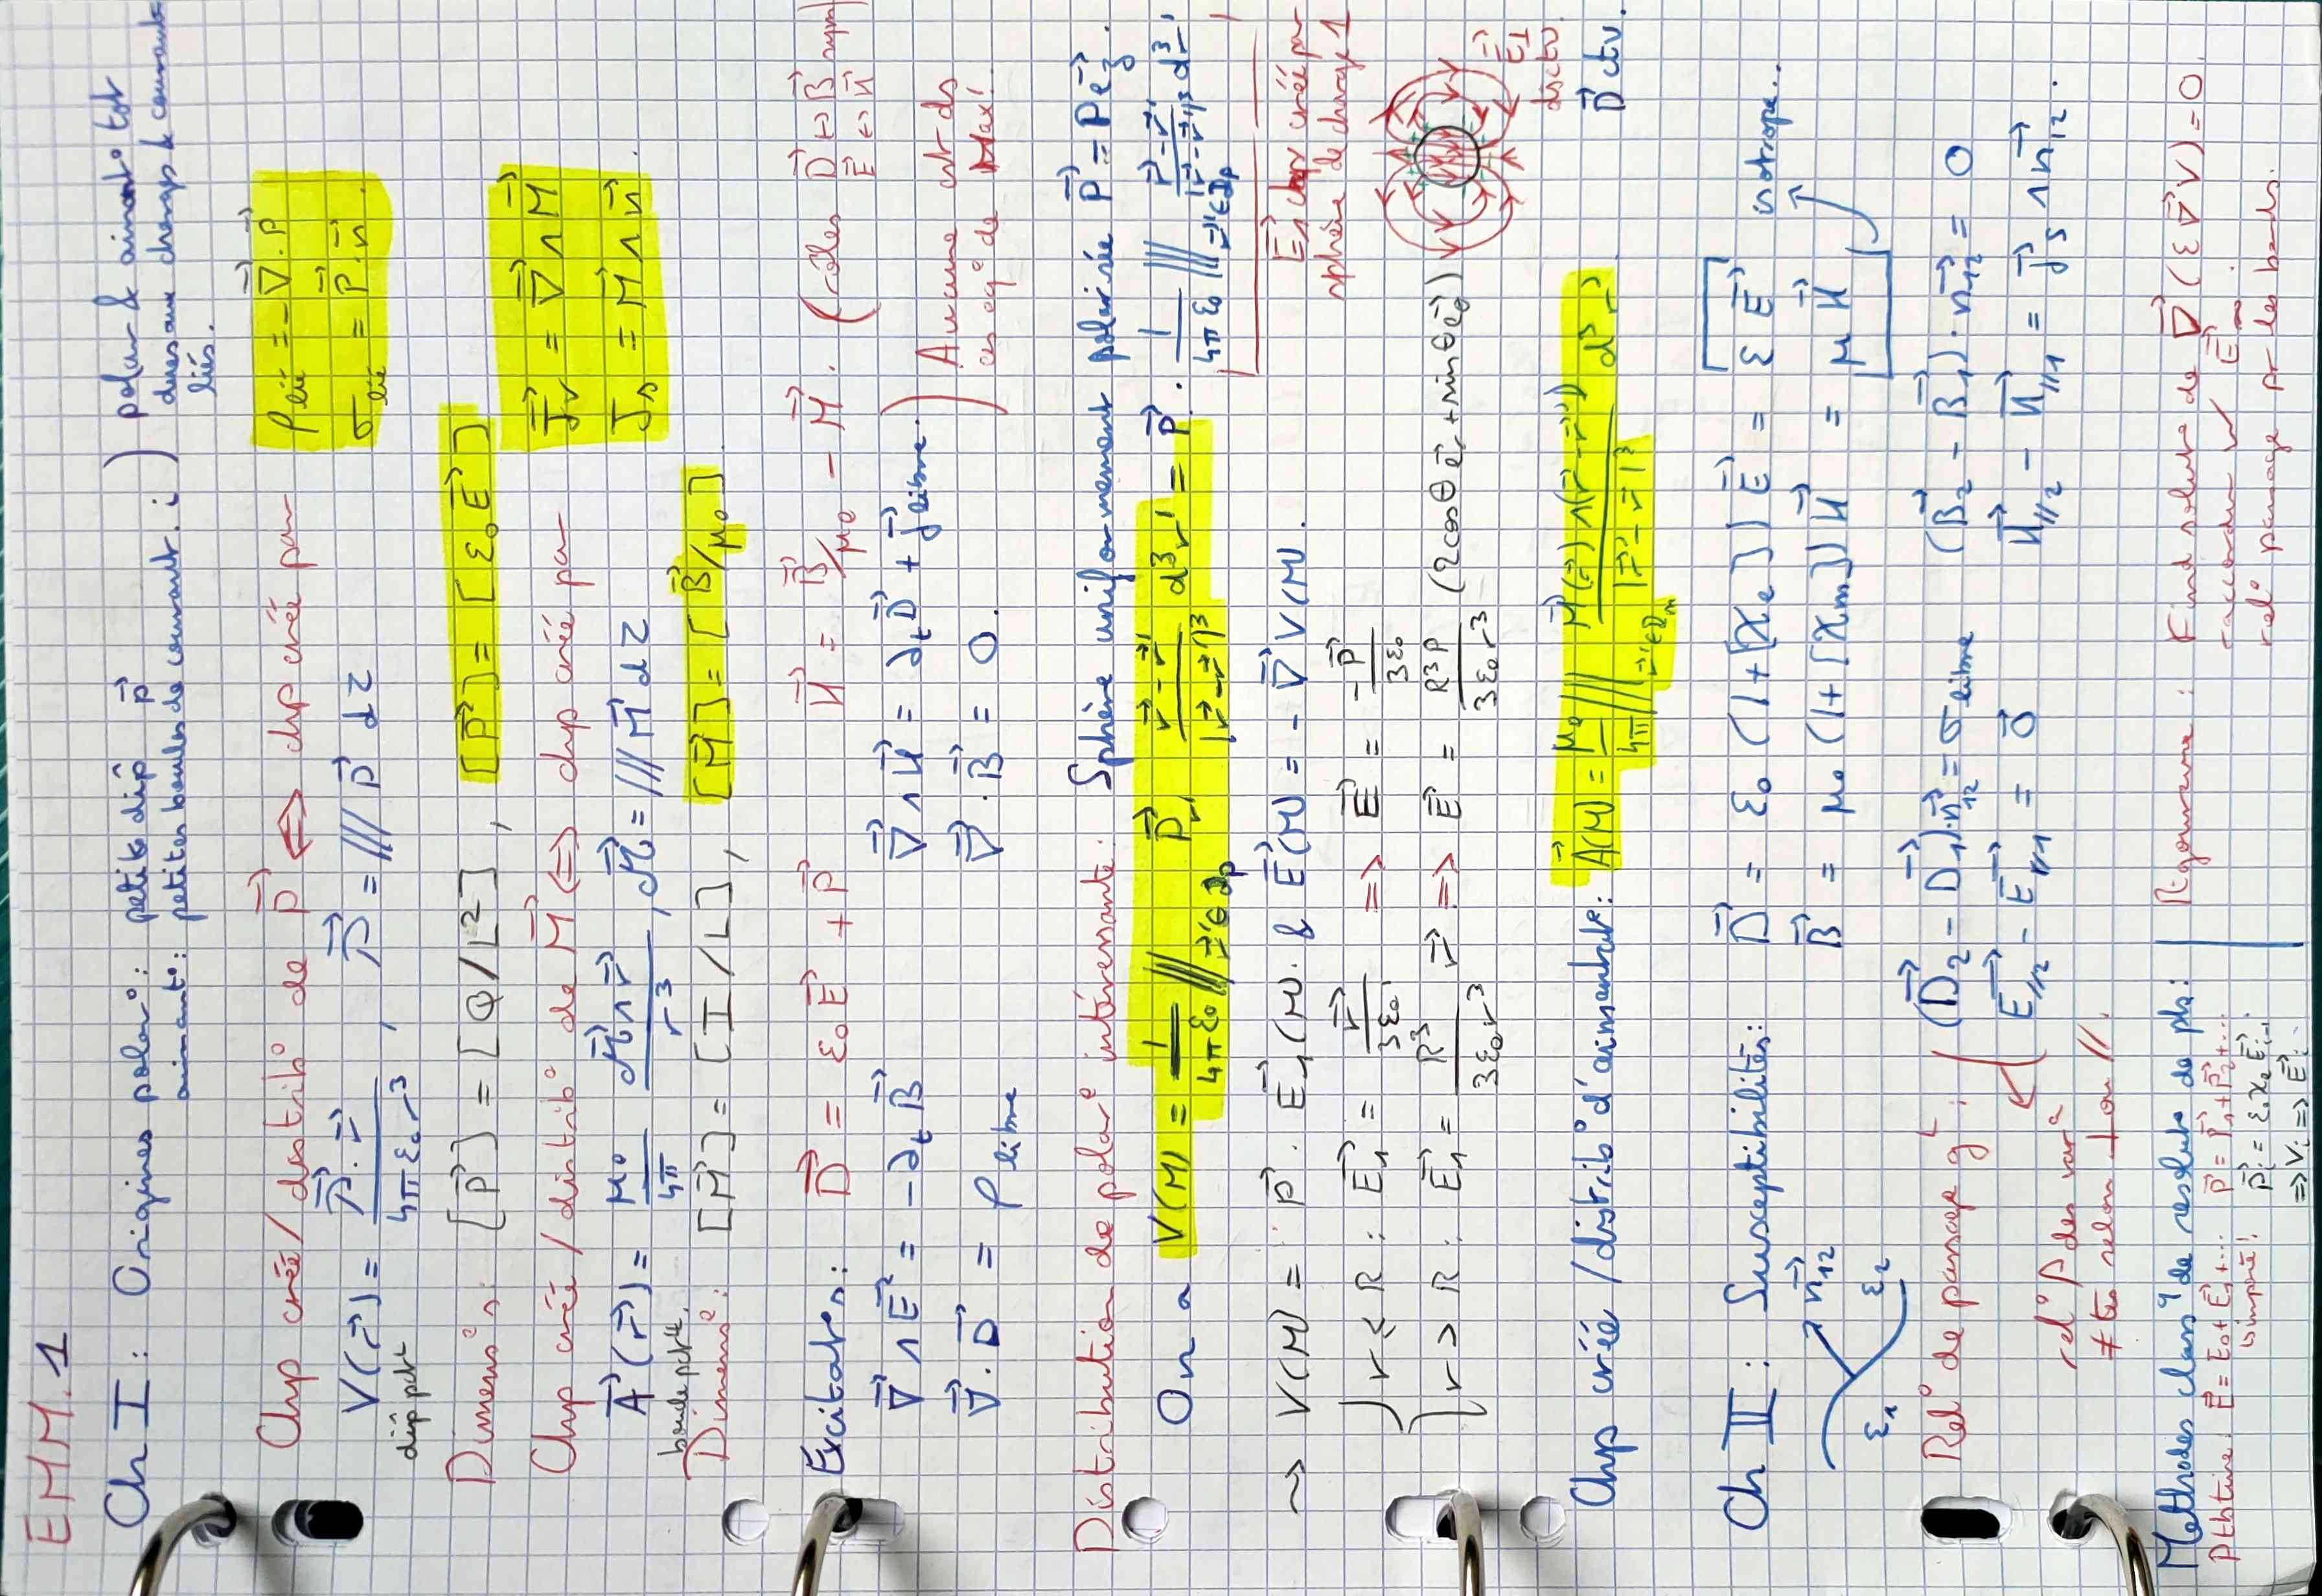 EMM.1
Ch I : Origines polar° : petits dip p⃗ ) polar & aimant° tot
aimant° : petites boucles de courant. i ) dues aux charges & courants
liés.
Chp créé / distrib° de P⃗ <=> chp créé par ρ_lié = -∇⃗.P⃗
V(r⃗) = 𝒫⃗.r⃗ / 4πε₀r³ , 𝒫⃗ = ∭ P⃗ dτ σ_lié = P⃗.n⃗
dip pct
Dimens° : [P⃗] = [Q/L²] , [P⃗] = [ε₀E⃗]
Chp créé / distrib° de M⃗ <=> chp créé par J⃗v = ∇⃗∧M⃗
A⃗(r⃗) = μ₀/4π ℳ⃗∧r⃗ / r³ , ℳ⃗ = ∭ M⃗ dτ J⃗s = M⃗∧n⃗.
boucle pct
Dimens° : [M⃗] = [I/L] , [M⃗] = [B⃗/μ₀].
Excitat°s : D⃗ = ε₀E⃗ + P⃗ H⃗ = B⃗/μ₀ - M⃗. (rôles D⃗ ↔ B⃗ sym
E⃗ ↔ H⃗
∇⃗∧E⃗ = -∂ₜB⃗ ∇⃗∧H⃗ = ∂ₜD⃗ + j⃗libre. ) Aucune cst ds
∇⃗.D⃗ = ρ libre ∇⃗.B⃗ = 0. ces eq° de Max!
Distribution de polar° intéressante : Sphère uniformément polarisée P⃗ = Pe⃗z.
On a V(M) = 1/4πε₀ ∭r⃗'∈𝒟p P⃗. r⃗-r⃗' / |r⃗-r⃗'|³ d³r' = P⃗. 1/4πε₀ ∭r⃗'∈𝒟p r⃗-r⃗' / |r⃗-r⃗'|³ d³r'
⇝ V(M) = P⃗. E⃗₁(M). & E⃗(M) = -∇⃗V(M). E⃗₁ chp créé par
sphère de charge 1
{ r < R : E⃗₁ = r⃗/3ε₀ => E⃗ = -P⃗/3ε₀
{ r > R : E⃗₁ = R³/3ε₀r³ r⃗ => E⃗ = R³P/3ε₀r³ (2cosθ e⃗r + sinθ e⃗θ)
E⃗⊥
disctu
D⃗ ctu.
Chp créé / distrib° d'aimantat° : A⃗(M) = μ₀/4π ∭r⃗'∈𝒟m M⃗(r⃗')∧(r⃗-r⃗') / |r⃗-r⃗'|³ d³r'
Ch II : Susceptibilités : D⃗ = ε₀(1+[χe])E⃗ = [ε E⃗ isotrope..
n⃗₁₂ B⃗ = μ₀(1+[χm])H⃗ = μ H⃗]
ε₁ ε₂
Rel° de passage gᵗ : { (D⃗₂ - D⃗₁).n⃗₁₂ = σ libre (B⃗₂ - B⃗₁).n⃗₁₂ = 0
E⃗//₂ - E⃗//₁ = 0⃗ H⃗//₂ - H⃗//₁ = j⃗s ∧ n⃗₁₂.
rel° des var°
≠tes selon ⊥ ou //.
Méthodes class^q de résolut° de pb : Rigoureuse : Find solut° de ∇⃗(ε∇⃗V) = 0.
Ptbtive : E⃗ = E⃗₀ + E⃗₁ + ... P⃗ = P⃗₁ + P⃗₂ + ... raccorder E⃗∞
imposé! P⃗i = ε₀χeE⃗i-1 rel° passage pr les bords.
=> Vi => E⃗i.